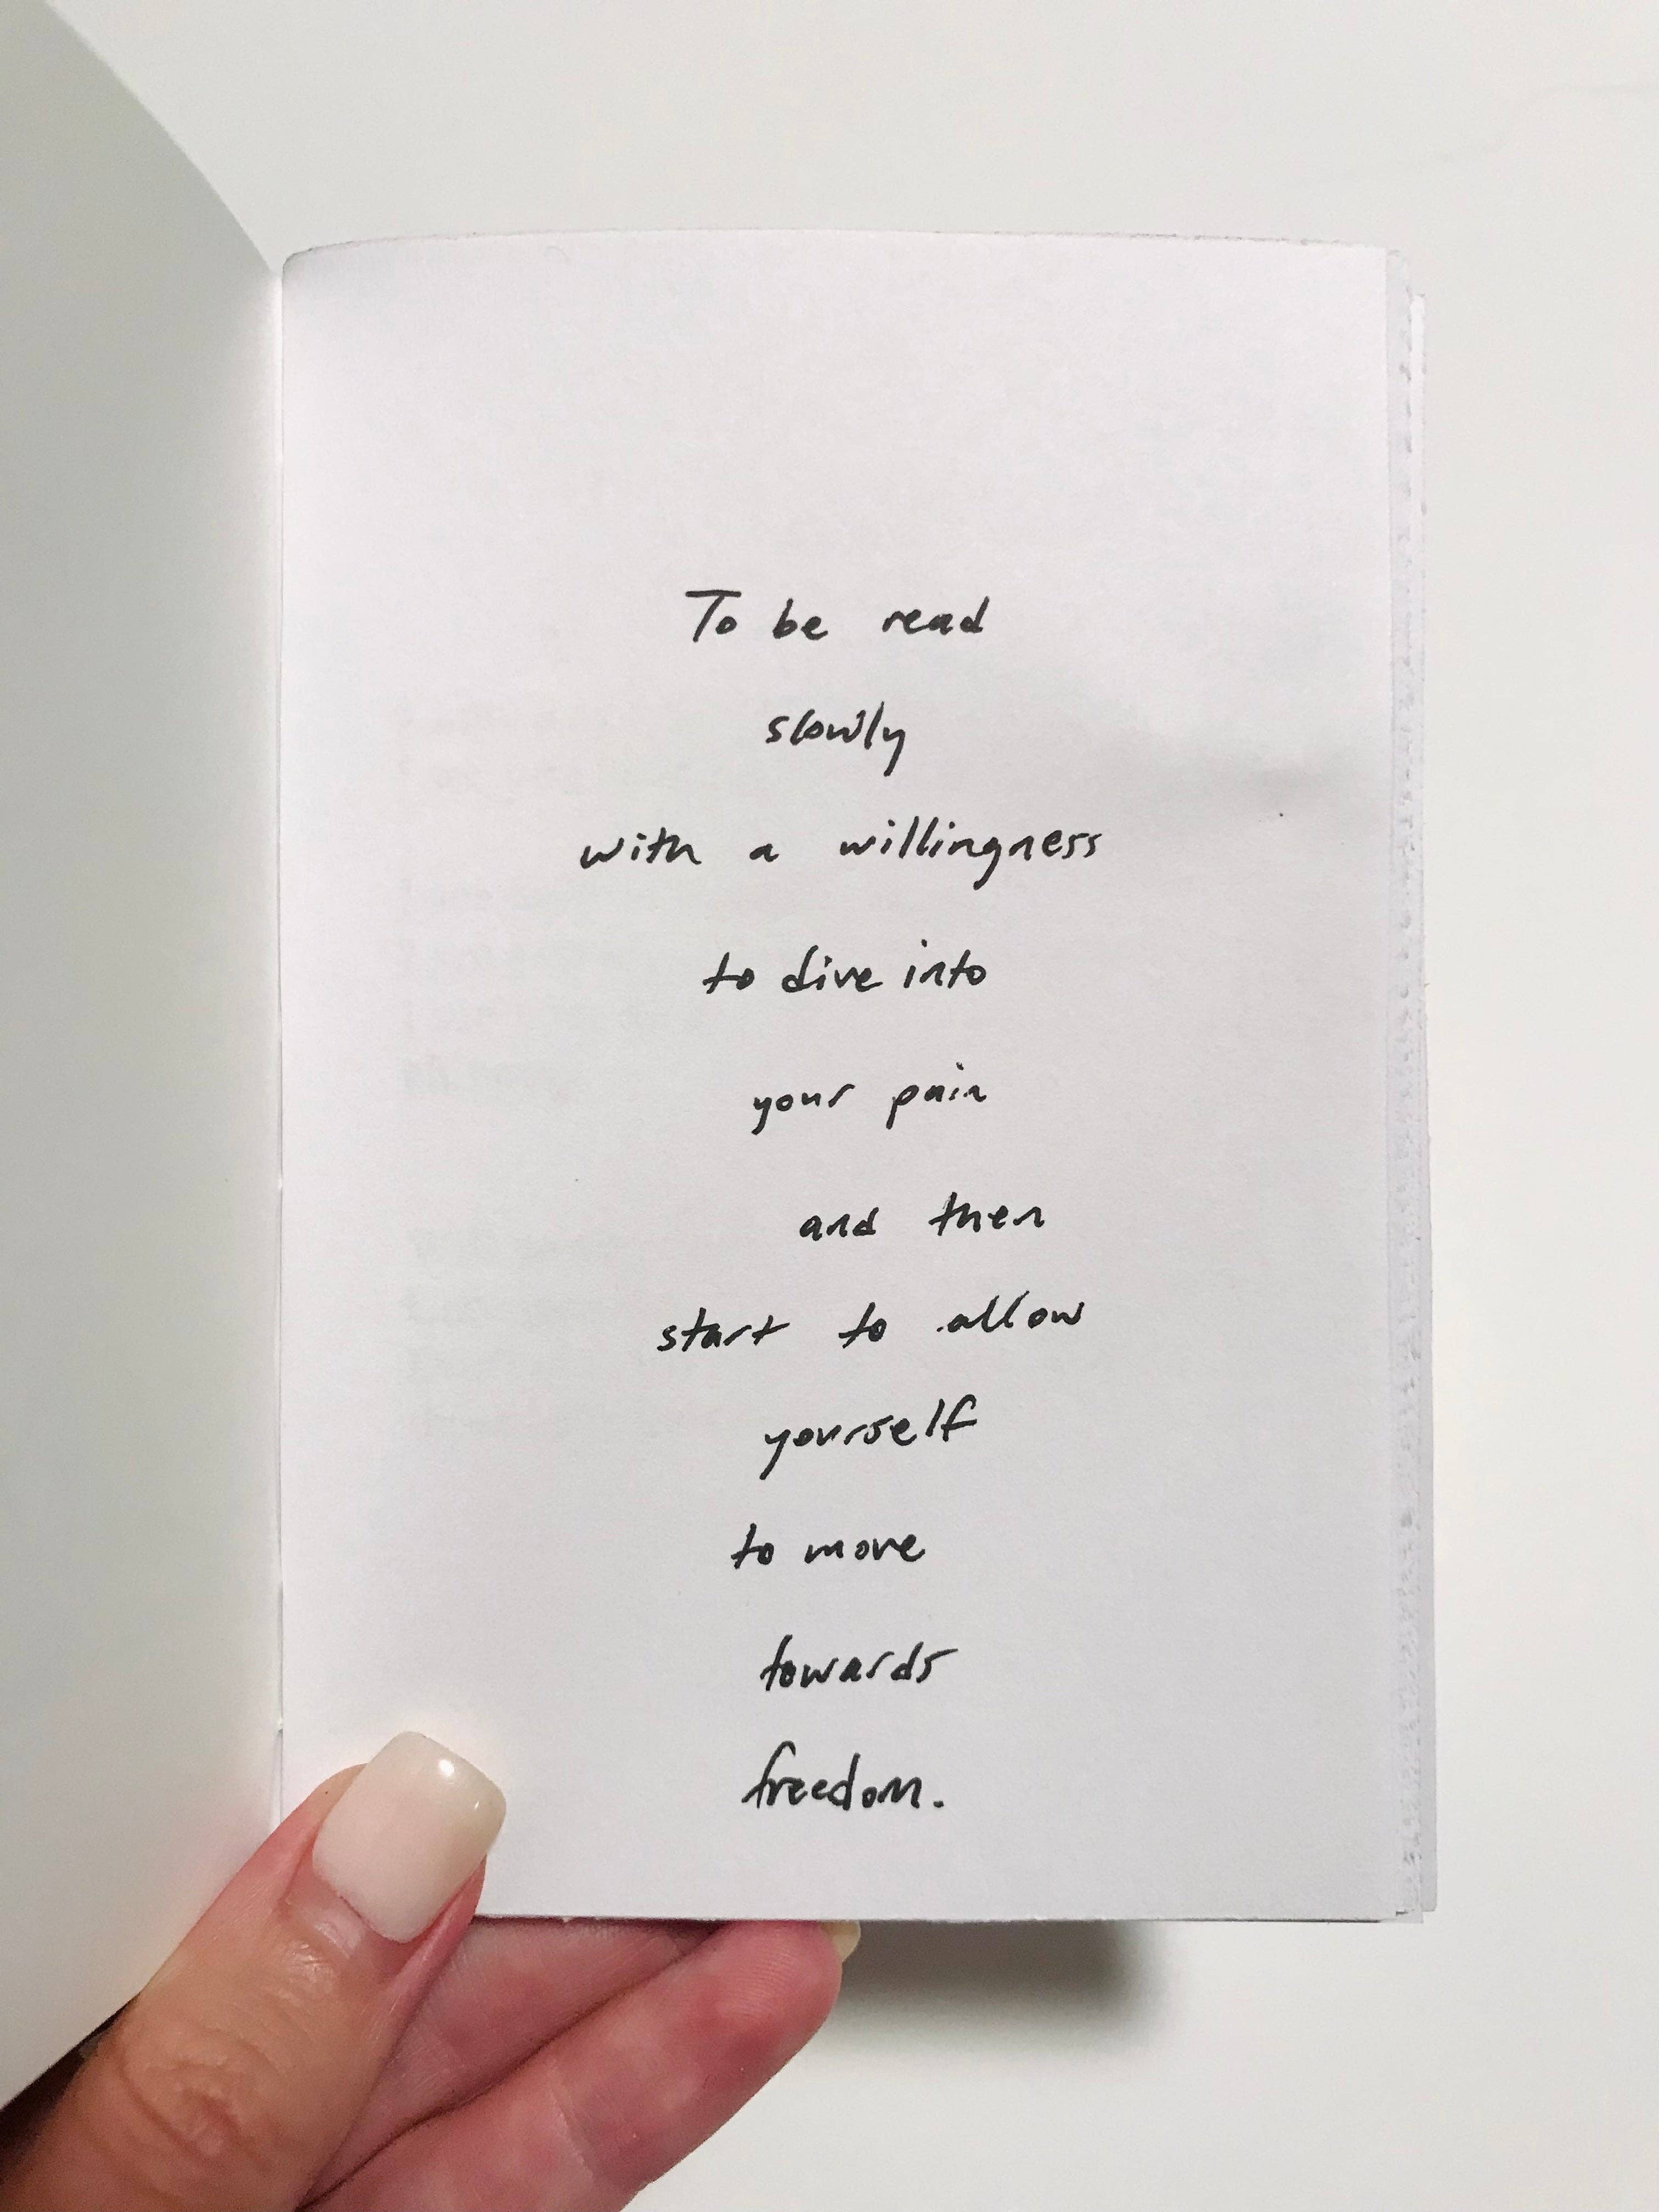 To be read
slowly
with a willingness
to dive into
your pain
and then
start to allow
yourself
to move
towards
freedom.